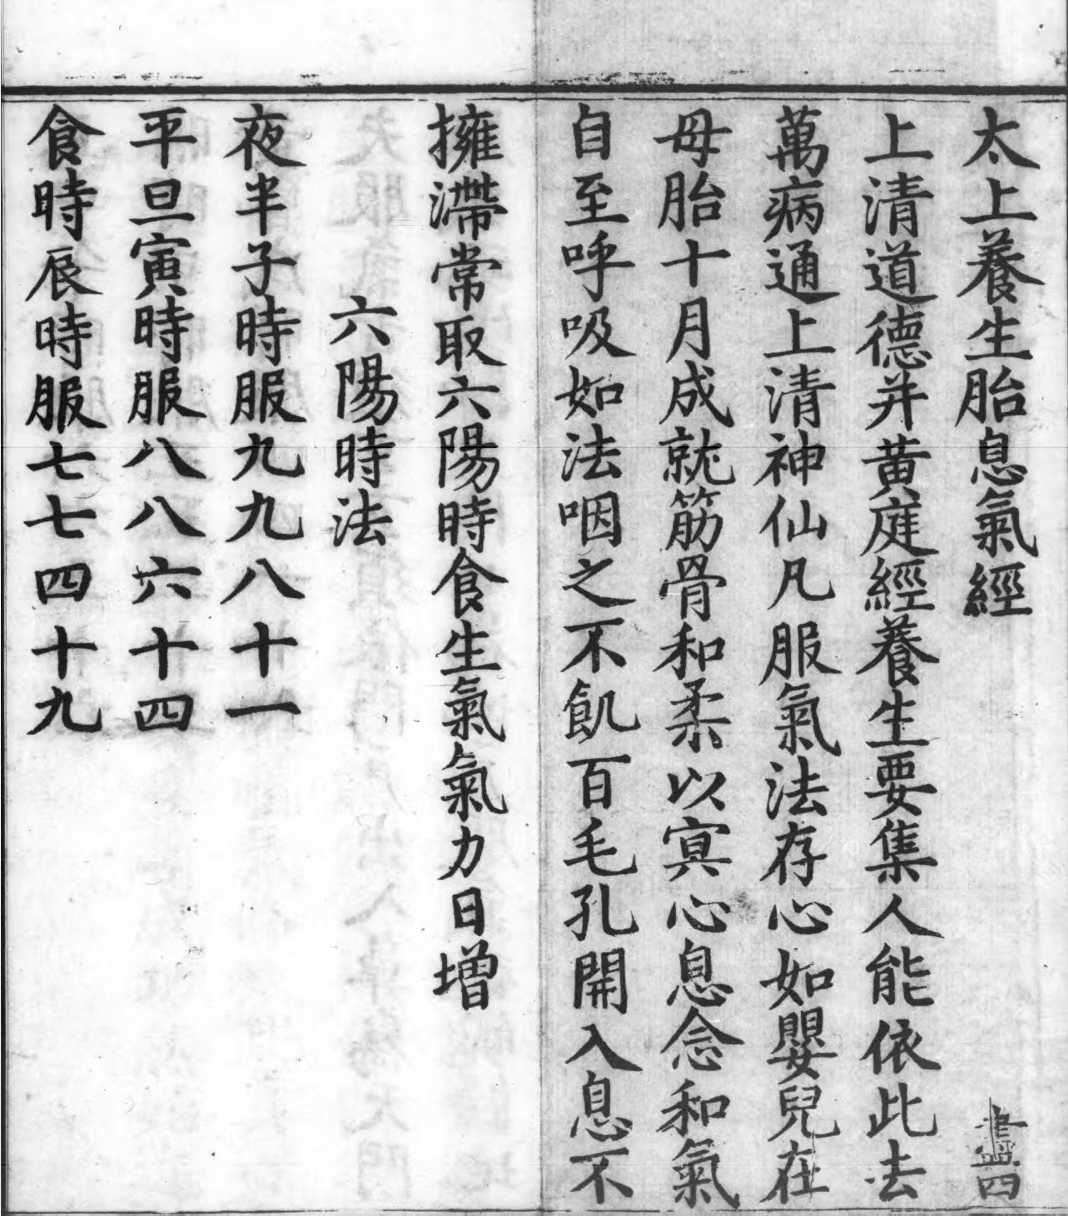 太上養生胎息氣經
盡四
上清道德并黄庭經養生要集人能依此去
萬病通上清神仙凡服氣法存心如嬰兒在
母胎十月成就筋骨和柔以㝠心息念和氣
自至呼吸如法咽之不飢百毛孔開入息不
擁滯常取六陽時食生氣氣力日增
六陽時法
夜半子時服九九八十一
平旦寅時服八八六十四
食時辰時服七七四十九